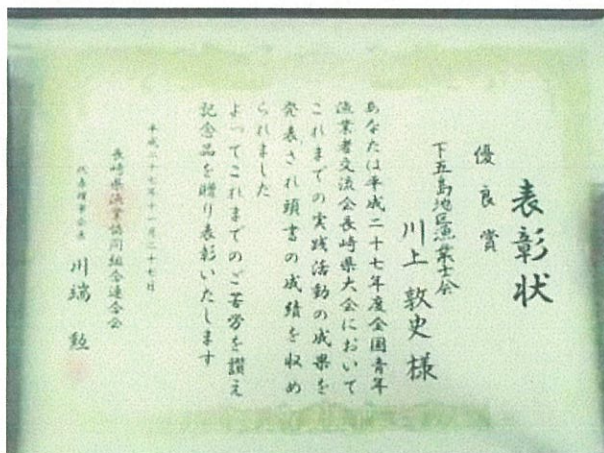 表彰状
優良賞
下五島地区漁業士会
川上敦史様
あなたは平成二十七年度全国青年
漁業者交流会長崎県大会において
これまでの実践活動の成果を
発表され頭書の成績を収め
られました
よってこれまでのご苦労を讃え
記念品を贈り表彰いたします
平成二十七年十一月二十七日
長崎県漁業協同組合連合会
代表理事会長 川端勲